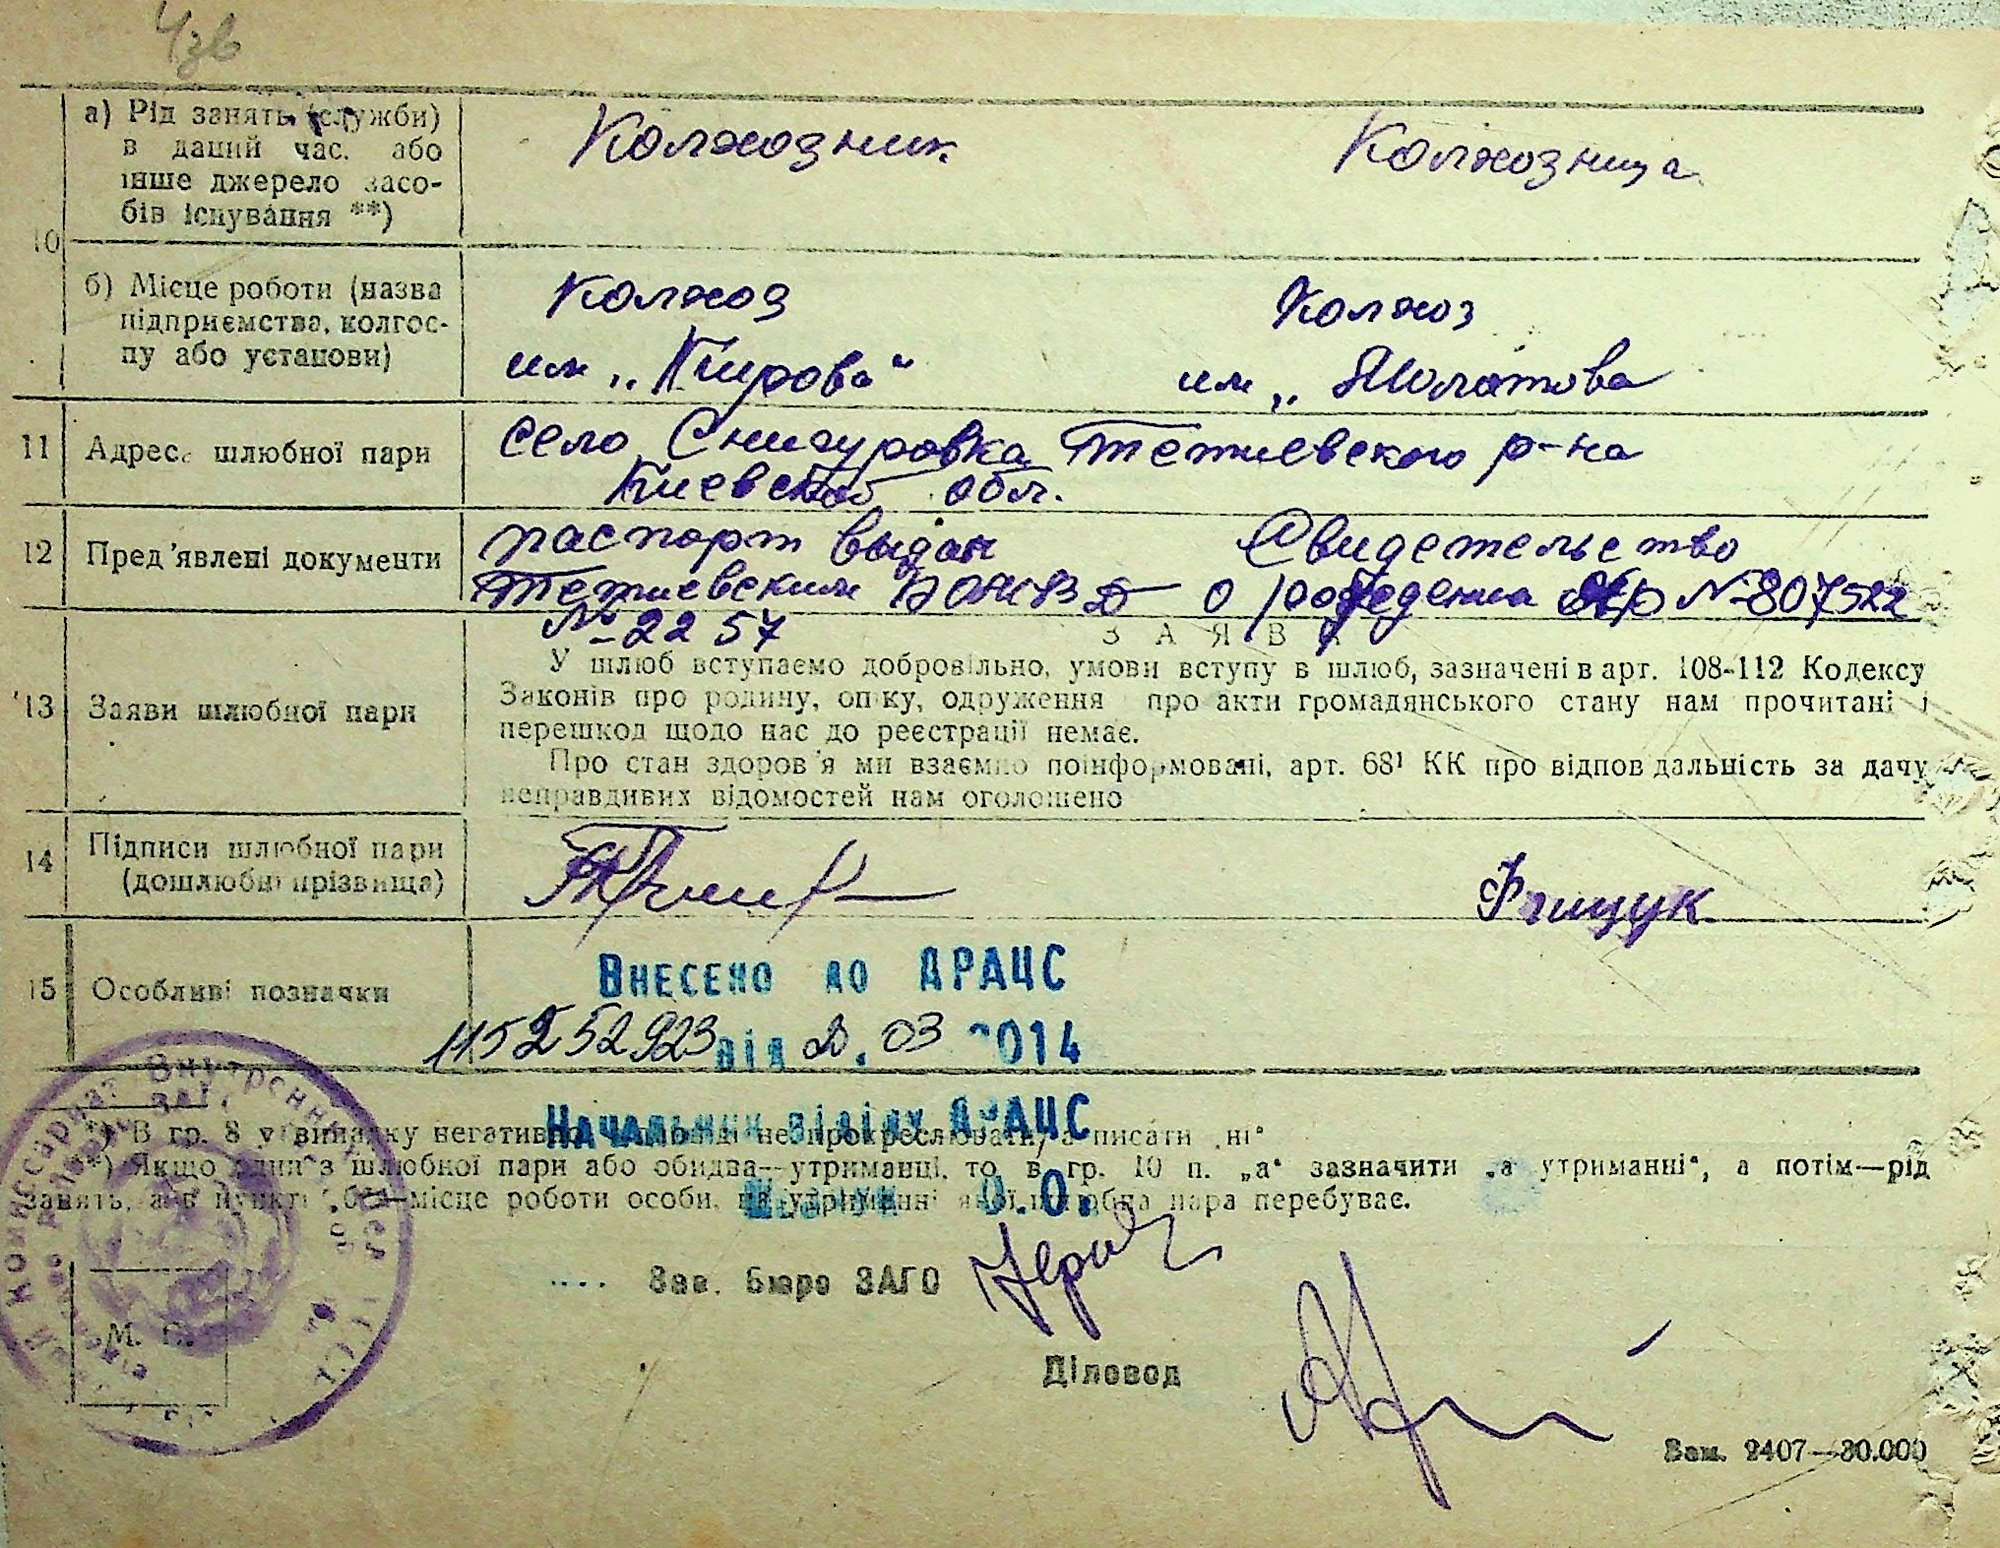 4 зв
а) Рід занять (служби) Колхозник Колхозница
в даний час, або
інше джерело засо-
бів існування **)
10
б) Місце роботи (назва Колхоз Колхоз
підприємства, колгос- им „Кирова“ им „Молотова
пу або установи)
11 Адреса шлюбної пари село Снигуровка Тетиевского р-на
Киевской обл.
12 Пред'явлені документи паспорт выдан Свидетельство
Тетиевским о рождении № 807522
№ 2257
ЗАЯВА
13 Заяви шлюбної пари
У шлюб вступаємо добровільно, умови вступу в шлюб, зазначені в арт. 108-112 Кодексу
Законів про родину, опіку, одруження про акти громадянського стану нам прочитані і
перешкод щодо нас до реєстрації немає.
Про стан здоров'я ми взаємно поінформовані, арт. 68¹ КК про відповідальність за дачу
неправдивих відомостей нам оголошено
14 Підписи шлюбної пари
(дошлюбні прізвища)
15 Особливі позначки
Внесено до ДРАЦС
115252923 від 03 2014
Начальник відділу ДРАЦС
О.О.
*) В гр. 8 у випадку негативної відповіді не прокреслювати, а писати „ні“
**) Якщо один з шлюбної пари або обидва—утриманці, то в гр. 10 п. „а“ зазначити „а утриманні“, а потім—рід
занять, а в пункті „б“—місце роботи особи, на утриманні якої шлюбна пара перебуває.
Зав. Бюро ЗАГС
М. П.
Діловод
Зам. 2407—30.000